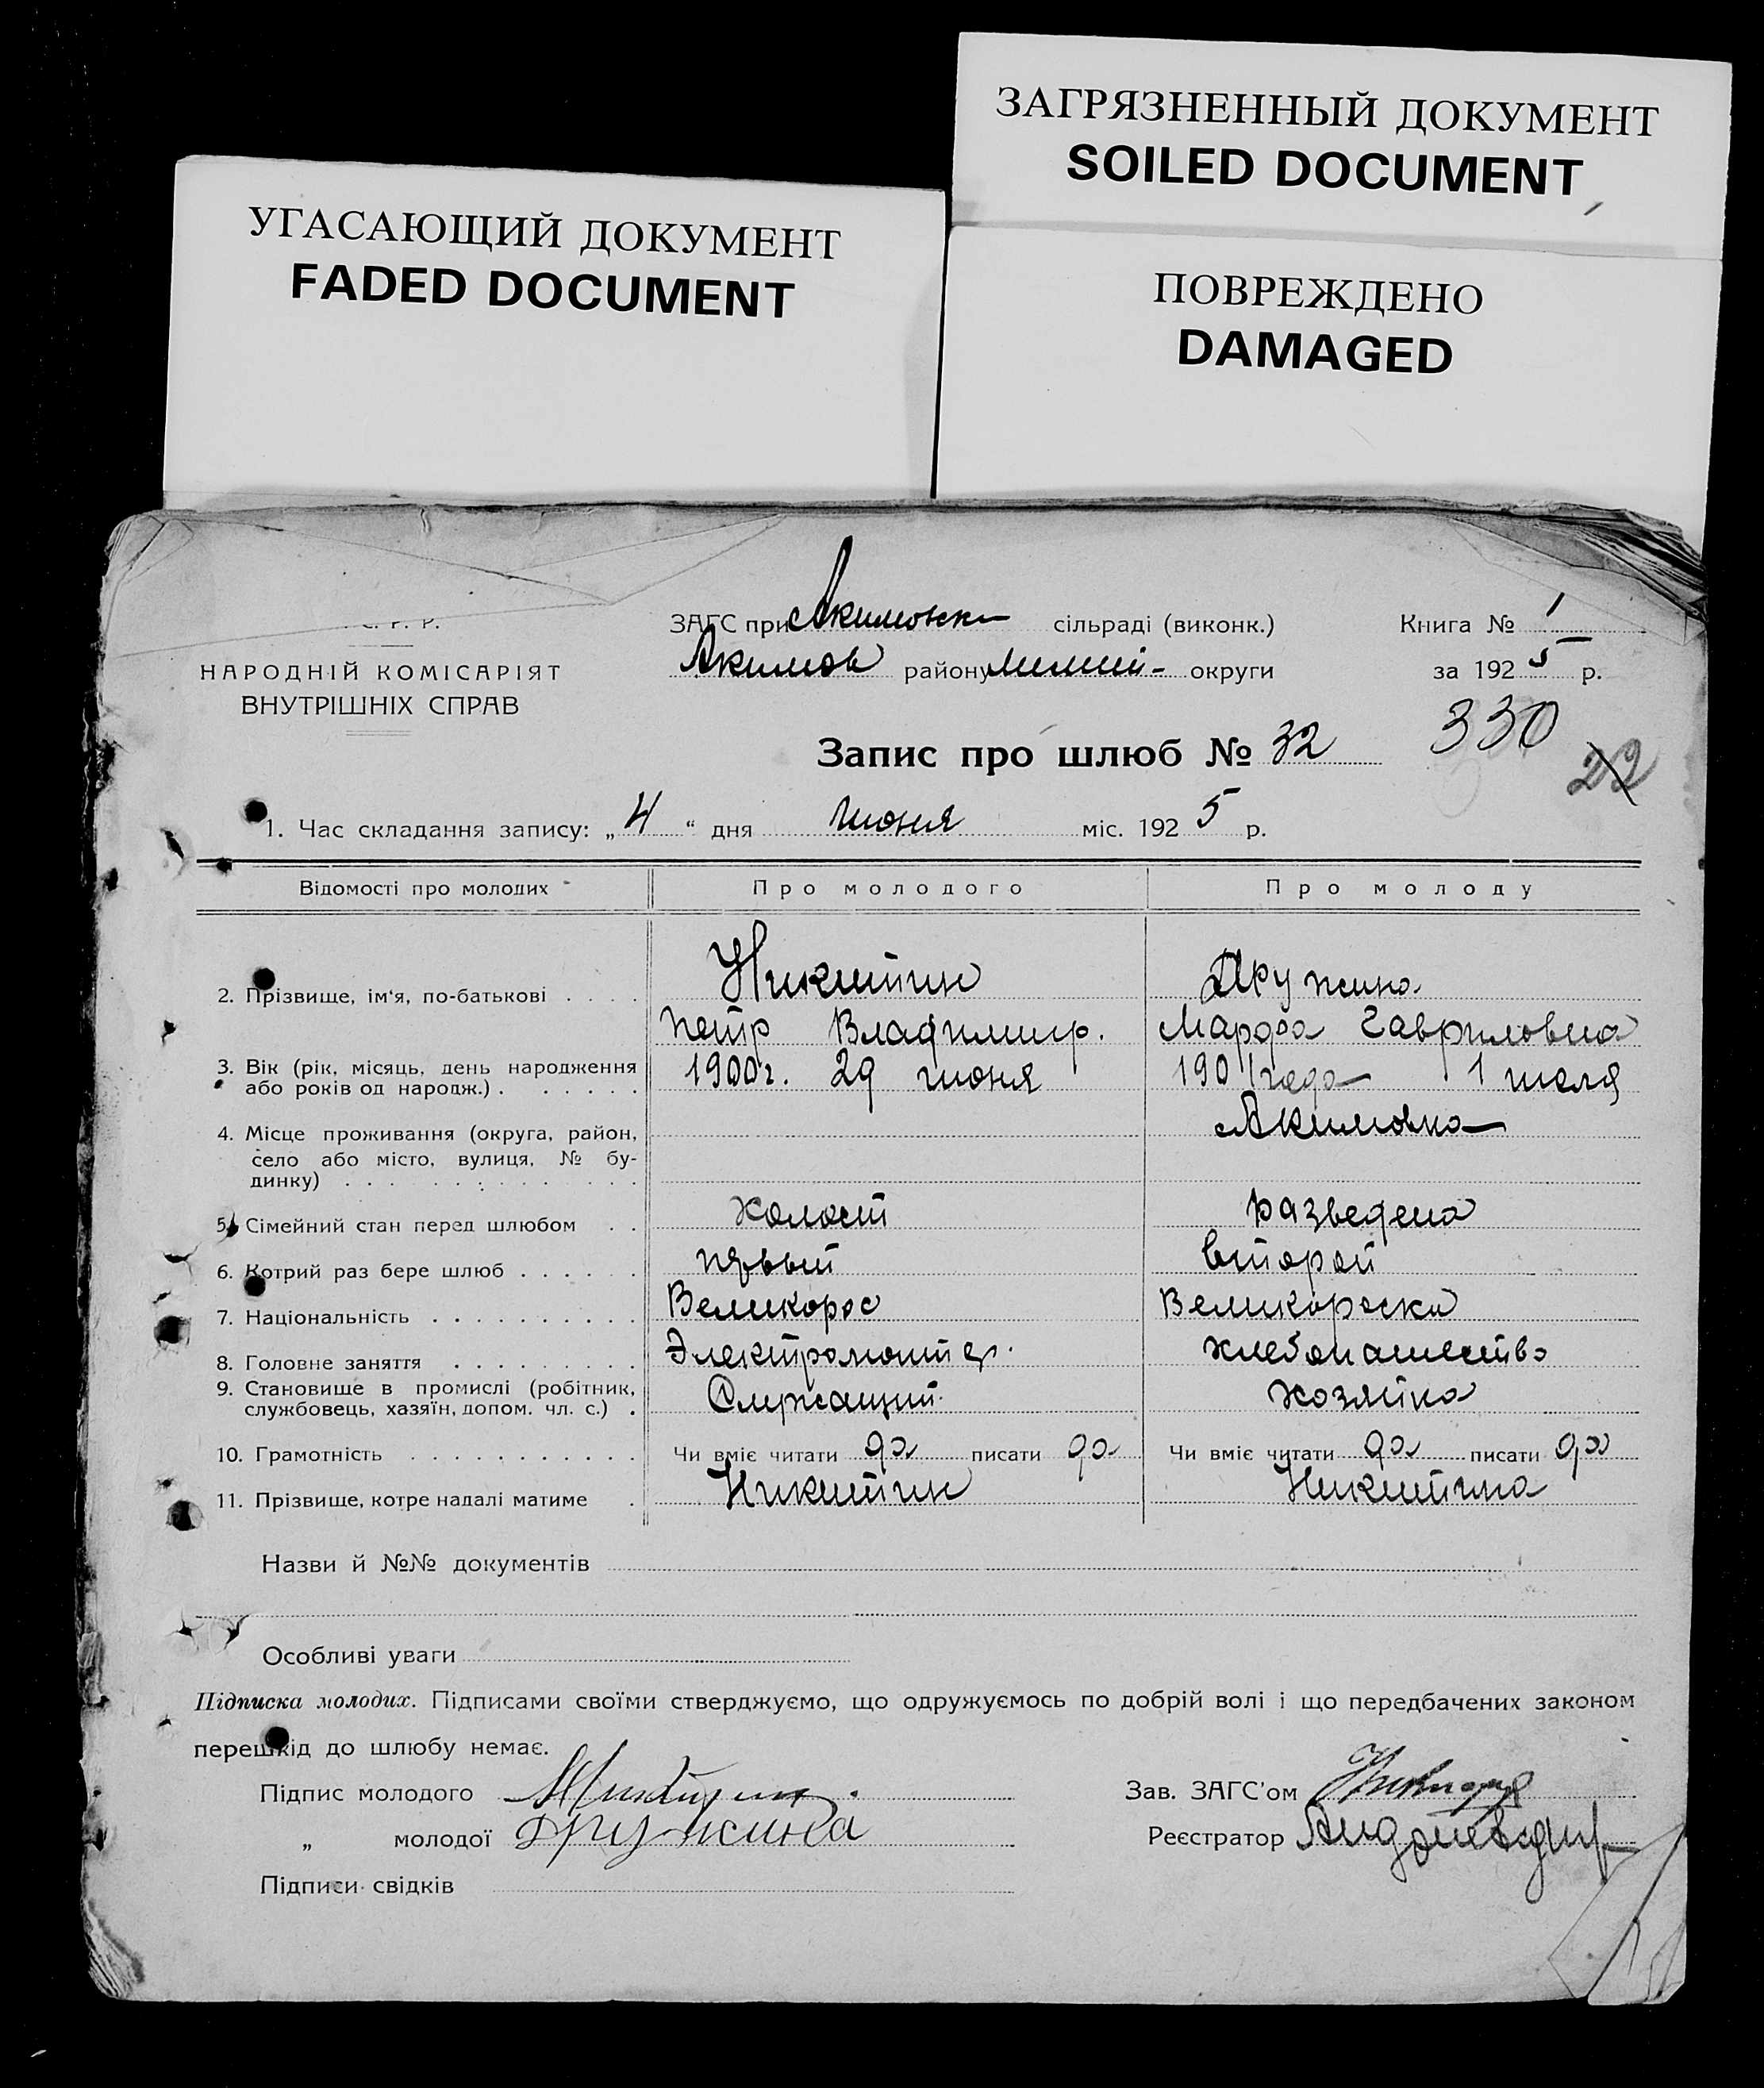 ЗАГРЯЗНЕННЫЙ ДОКУМЕНТ
SOILED DOCUMENT
УГАСАЮЩИЙ ДОКУМЕНТ
FADED DOCUMENT
ПОВРЕЖДЕНО
DAMAGED
С. Р. Р.
НАРОДНІЙ КОМІСАРІЯТ
ВНУТРІШНІХ СПРАВ
ЗАГС при Акимовск сільраді (виконк.)
Акимов району округи
Книга № 1
за 1925 р.
330
22
Запис про шлюб № 32
1. Час складання запису: „4“ дня июня міс. 1925 р.
Відомості про молодих Про молодого Про молоду
2. Прізвище, ім'я, по-батькові . . . . Никитин Дружина
Петр Владимир. Марфа Гавриловна
3. Вік (рік, місяць, день народження 1900г. 29 июня 1901 года 1 июля
або років од народж.) . . . . . .
4. Місце проживання (округа, район, Акимовка
село або місто, вулиця, № бу-
динку) . . . . . . . . . . . . .
5. Сімейний стан перед шлюбом . . холост разведена
6. Котрий раз бере шлюб . . . . . . второй
7. Національність . . . . . . . . . . Великорос Великороска
8. Головне заняття . . . . . . . . . Электромонтер. хлебопашество
9. Становище в промислі (робітник, Служащий. хозяйка
службовець, хазяїн, допом. чл. с.) .
10. Грамотність . . . . . . . . . . . Чи вміє читати да писати да Чи вміє читати да писати да
11. Прізвище, котре надалі матиме . Никитин Никитина
Назви й №№ документів
Особливі уваги
Підписка молодих. Підписами своїми стверджуємо, що одружуємось по добрій волі і що передбачених законом
перешкід до шлюбу немає.
Підпис молодого Никитин.
„ молодої Дружина
Підписи свідків
Зав. ЗАГС'ом
Реєстратор